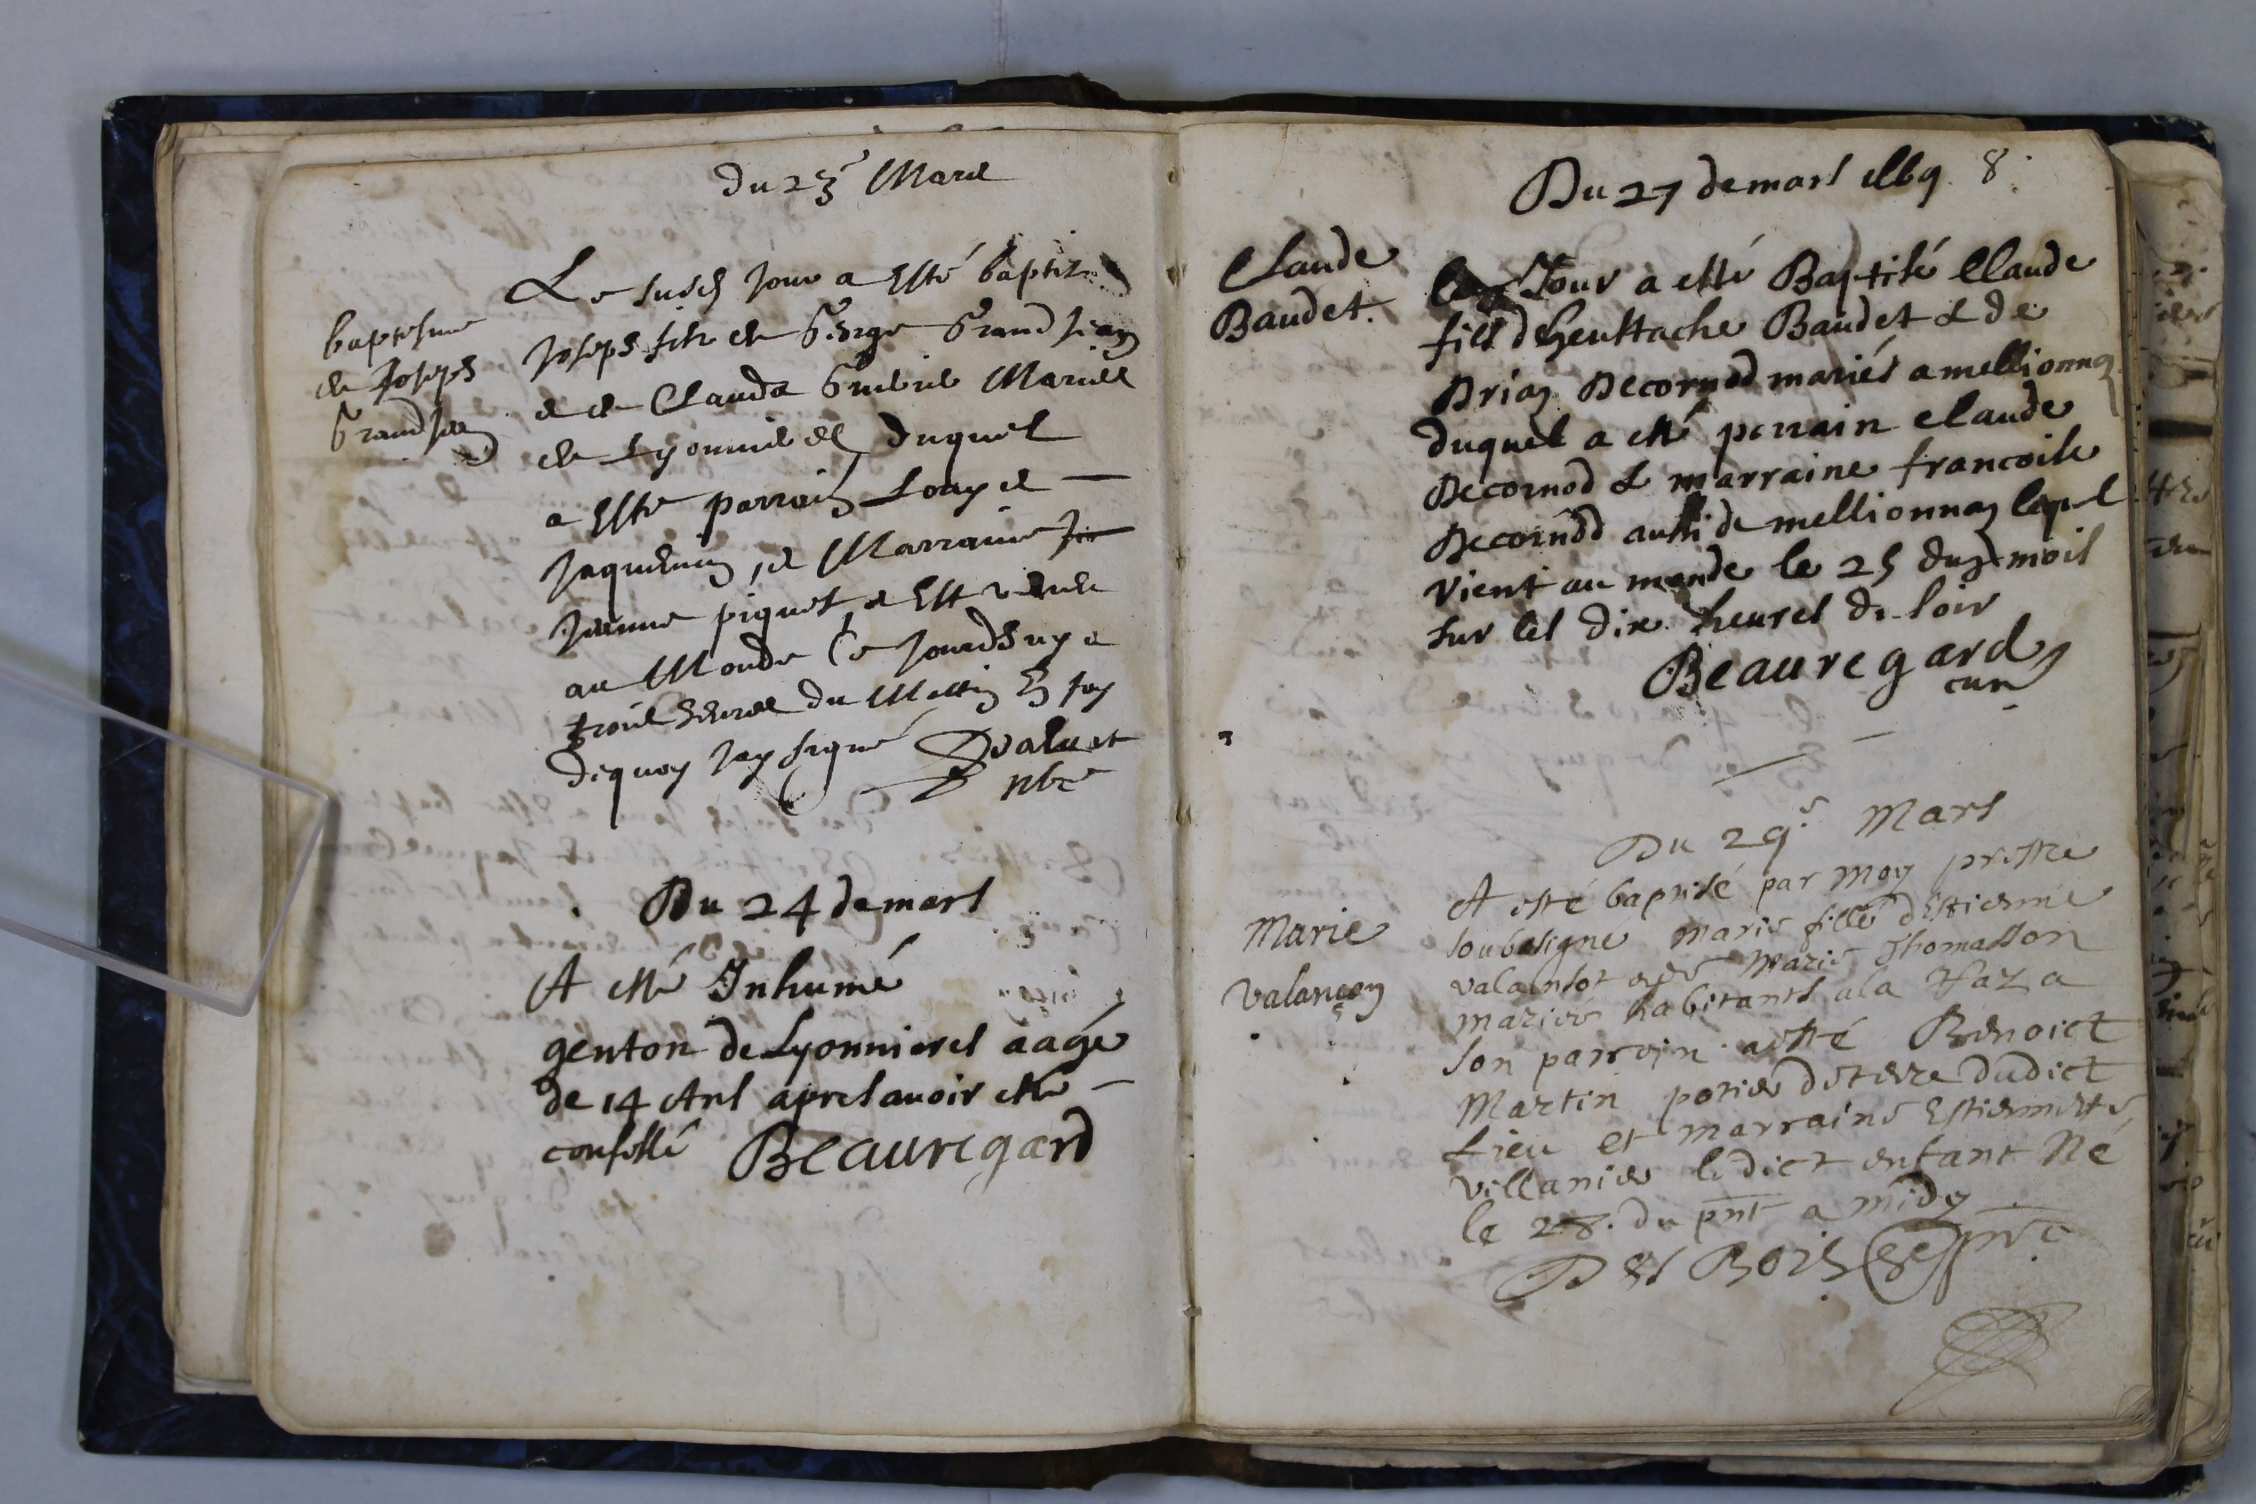 du 23e Mars
baptesme
de Joseps
Grand Jean
Le susd Jour a esté baptizé
Joseps filz de George Grand Jean
et de Clauda Mariés
de Lyonnieres duquel
a esté parrain Louys
Jaquemin, et Marraine
Jeanne piquet et est venu
au Monde Ce Jourdhuy a
trois heures du Mattin En foy
dequoy Jay signé
Du 24 de mars
A esté Inhumé
genton de Lyonnieres aagé
de 14 Ans apres avoir esté
confessé Beauregard
Du 27 de mars 8.
Claude
Baudet.
Jour a esté Baptisé Claude
fils dheustache Baudet & de
Decornod mariés a mellionnas
duquel a esté parrain claude
Decornod & marraine francoise
Decornod aussi de mellionnas lequel
vient au monde le 25 dud mois
sur les dix heures de soir
Beauregard
curé
Du 29e Mars
Marie
Valançon
A esté baptisé par moy prestre
soubsigne marie fille d'Estienne
valansot et de marie Thomasson
mariés habitants a la
son parrain a esté Benoict
Martin potier de terre dudict
Lieu et marraine Estiennette
Villanier ledict enfant Né
le 28. du pnt a midy
Des Bois pbre